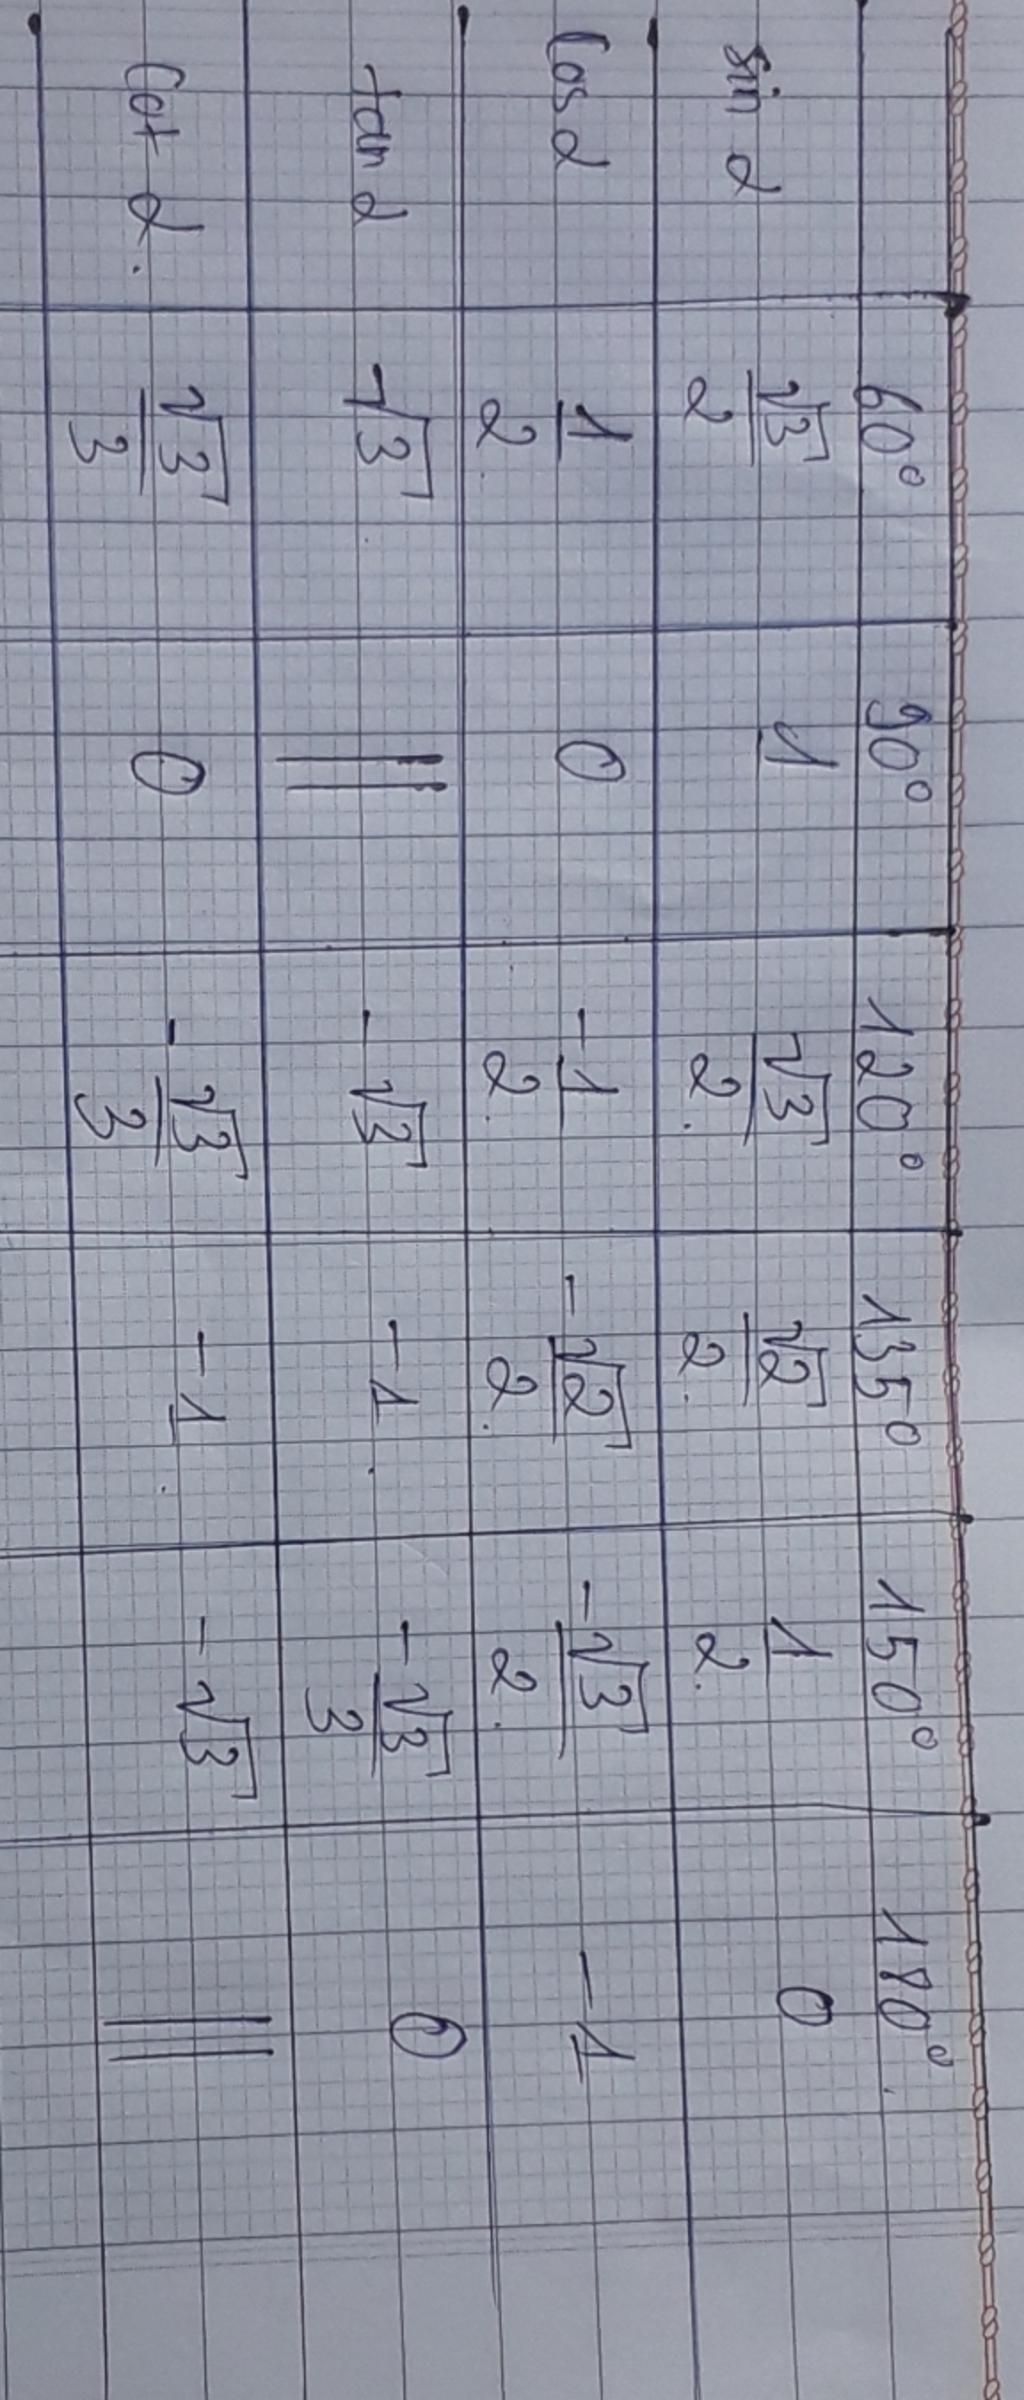 60° 90° 120° 135° 150° 180°
sin α √3/2 1 √3/2 √2/2 1/2 0
Cos α 1/2 0 -1/2 -√2/2 -√3/2 -1
tan α √3 || -√3 -1 -√3/3 0
Cot α √3/3 0 -√3/3 -1 -√3 ||